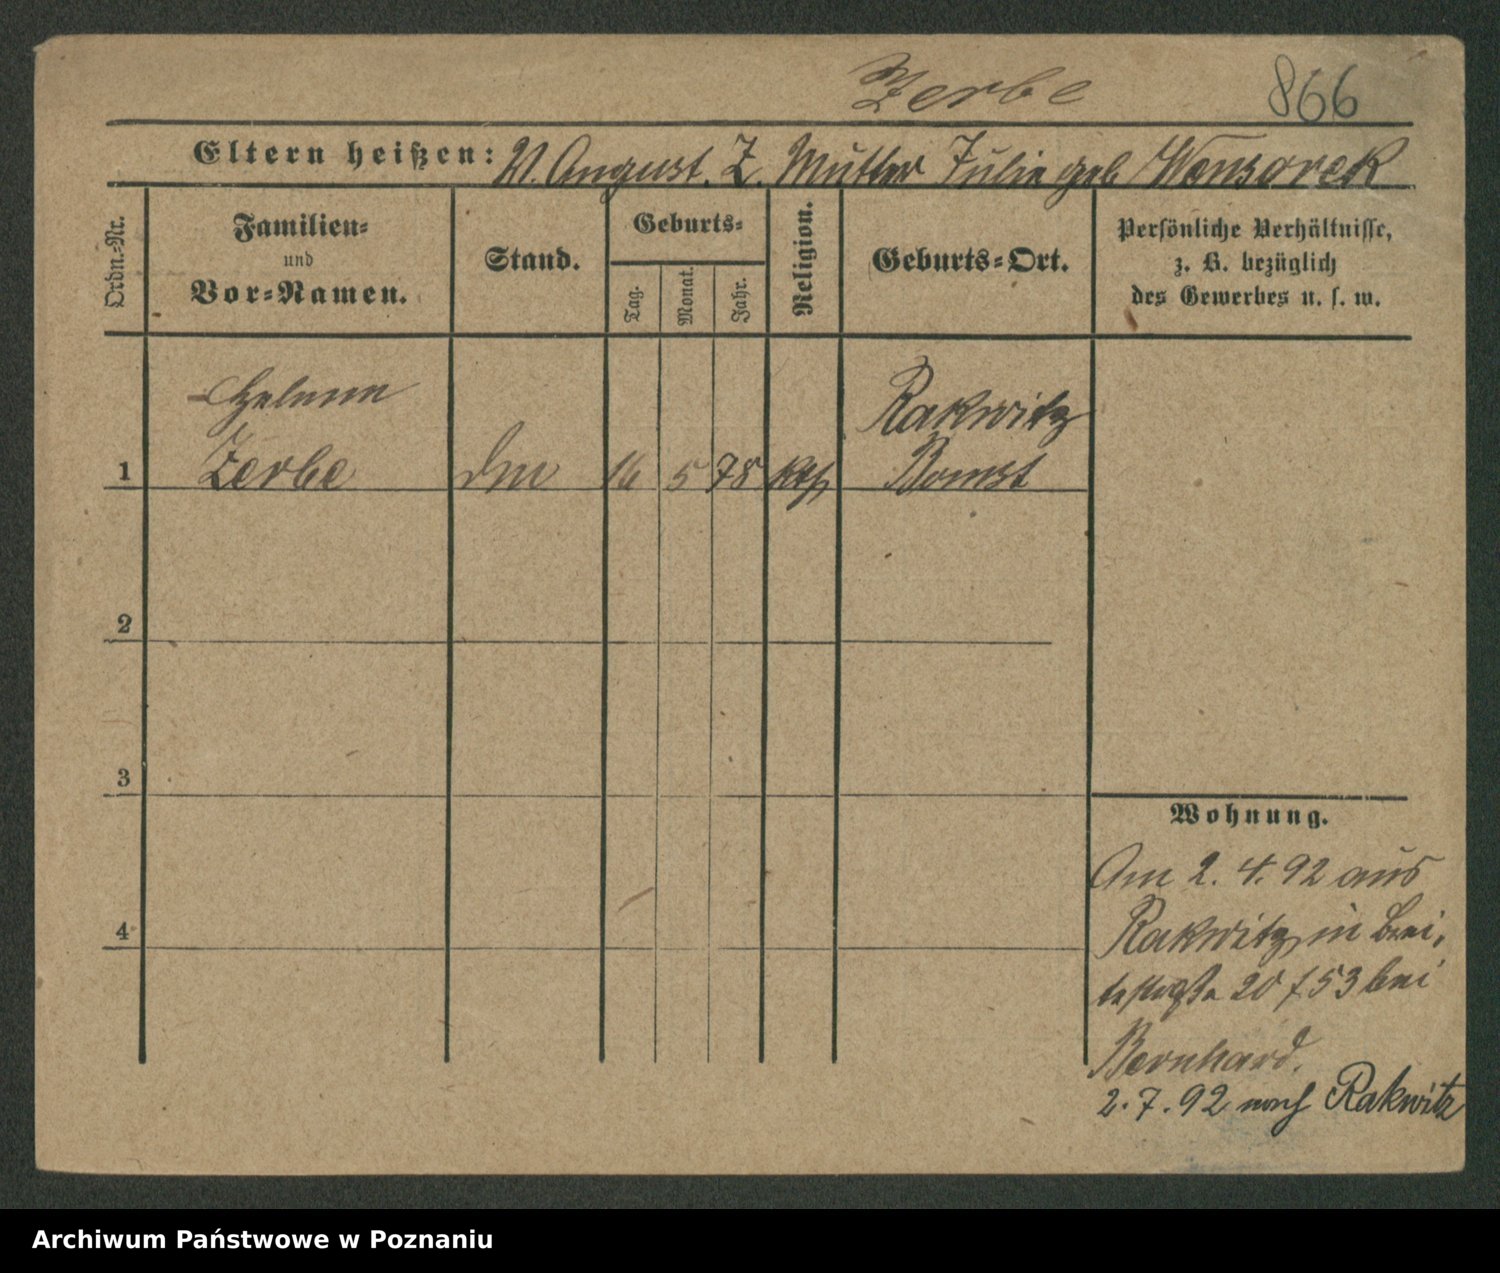 Zerbe 866
Eltern heißen: V. August. Z. Mutter Julie geb Wonsorek
Ordn.-Nr.
Familien-
und
Vor-Namen.
Stand.
Geburts-
Tag.
Monat.
Jahr.
Religion.
Geburts-Ort.
Persönliche Verhältnisse,
z. B. bezüglich
des Gewerbes u. s. w.
Helene Rakwitz
1 Zerbe 16 5 78 kth Bomst
2
3
4
Wohnung.
Am 2. 4. 92 aus
Rakwitz in Brei,
testraße 20 f 53 bei
Bernhard.
2. 7. 92 nach Rakwitz
Archiwum Państwowe w Poznaniu